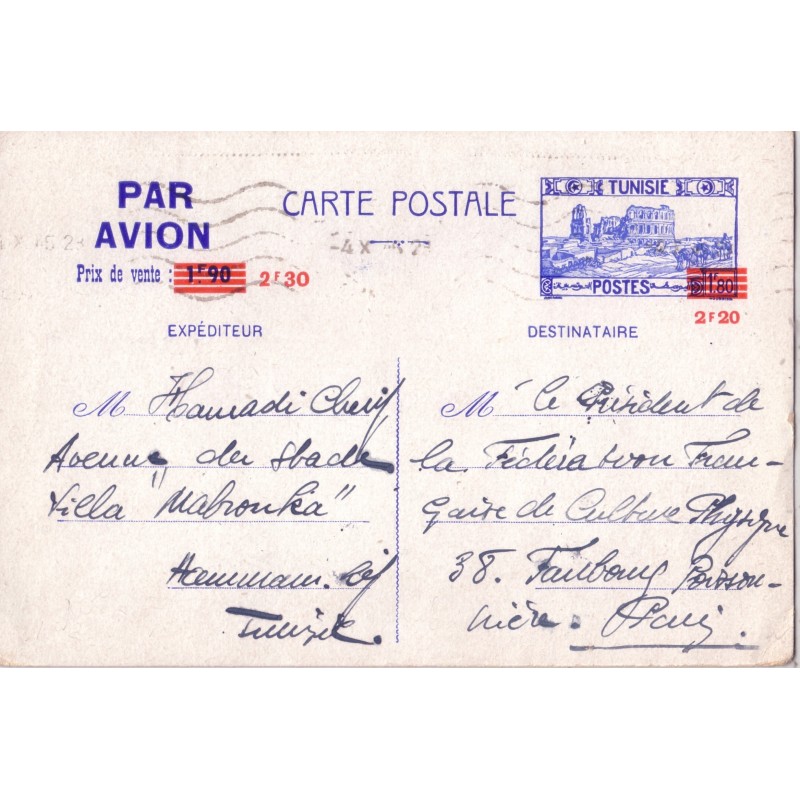 PAR
AVION
Prix de vente : 1F90 2F30
CARTE POSTALE
TUNISIE
POSTES
1F80
2F20
-4 X
EXPÉDITEUR
M Hamadi Cherif
Avenue du Stade
Villa "Mabrouka"
Hammam-Lif
Tunisie.
DESTINATAIRE
M le Président de
la Fédération Fran-
çaise de Culture Physique
38. Faubourg Poisson-
nière. Paris.